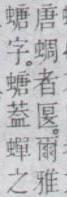 唐蜩者匽。爾雅
螗字。螗蓋蟬之